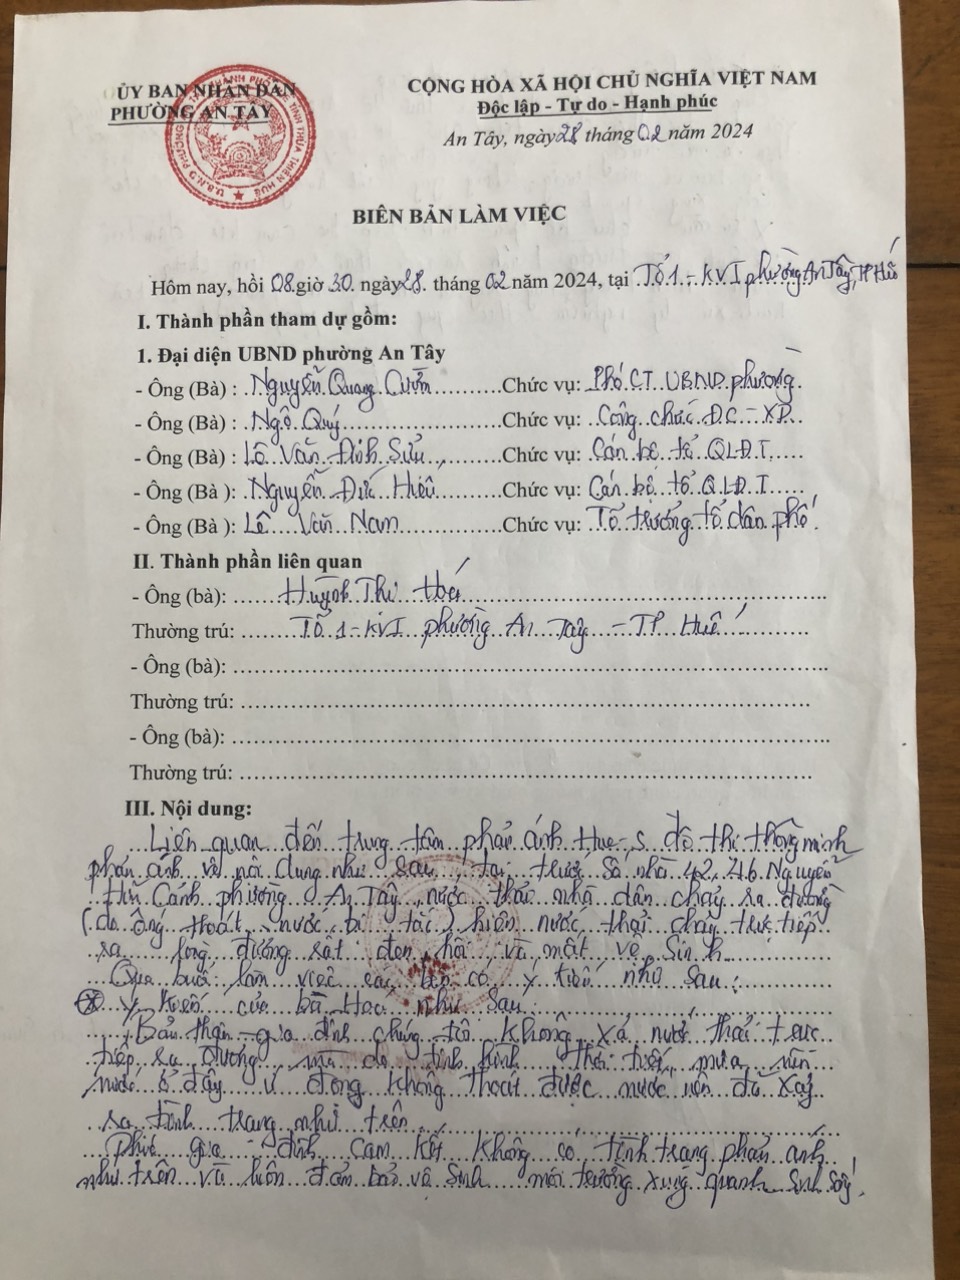 ỦY BAN NHÂN DÂN
PHƯỜNG AN TÂY
CỘNG HÒA XÃ HỘI CHỦ NGHĨA VIỆT NAM
Độc lập - Tự do - Hạnh phúc
An Tây, ngày 28 tháng 02 năm 2024
BIÊN BẢN LÀM VIỆC
Hôm nay, hồi 08 giờ 30 ngày 28 tháng 02 năm 2024, tại Tổ 1 - KVI phường An Tây, TP Huế
I. Thành phần tham dự gồm:
1. Đại diện UBND phường An Tây
- Ông (Bà) : Nguyễn Quang Cườm Chức vụ: Phó CT UBND phường
- Ông (Bà) : Ngô Quý Chức vụ: Công chức ĐC - XD
- Ông (Bà) : Lê Văn Đình Sửu Chức vụ: Cán bộ tổ QLĐT
- Ông (Bà ): Nguyễn Đức Hiếu Chức vụ: Cán bộ tổ QLĐT
- Ông (Bà ): Lê Văn Nam Chức vụ: Tổ trưởng tổ dân phố
II. Thành phần liên quan
- Ông (bà): Huỳnh Thị Hoá
Thường trú: Tổ 1 - KVI phường An Tây - TP Huế
- Ông (bà):
Thường trú:
- Ông (bà):
Thường trú:
III. Nội dung:
Liên quan đến trung tâm phản ánh Hue-S đô thị thông minh
phản ánh về nội dung như sau, tại trước số nhà 42, 46 Nguyễn
Hữu Cảnh phường An Tây, nước thải nhà dân chảy ra đường
(do ống thoát nước bị tắc) hiện nước thải chảy trực tiếp
ra lòng đường rất đen, hôi và mất vệ sinh
Qua buổi làm việc các bên có ý kiến như sau:
* Ý kiến của bà Hoá như sau
Bản thân gia đình chúng tôi không xả nước thải trực
tiếp ra đường, mà do tình hình thời tiết mưa nên
nước ở đây ứ đọng không thoát được nước nên đã xảy
ra tình trạng như trên
Phía gia đình cam kết không có tình trạng phản ánh
như trên và luôn đảm bảo vệ sinh môi trường xung quanh sinh sống.